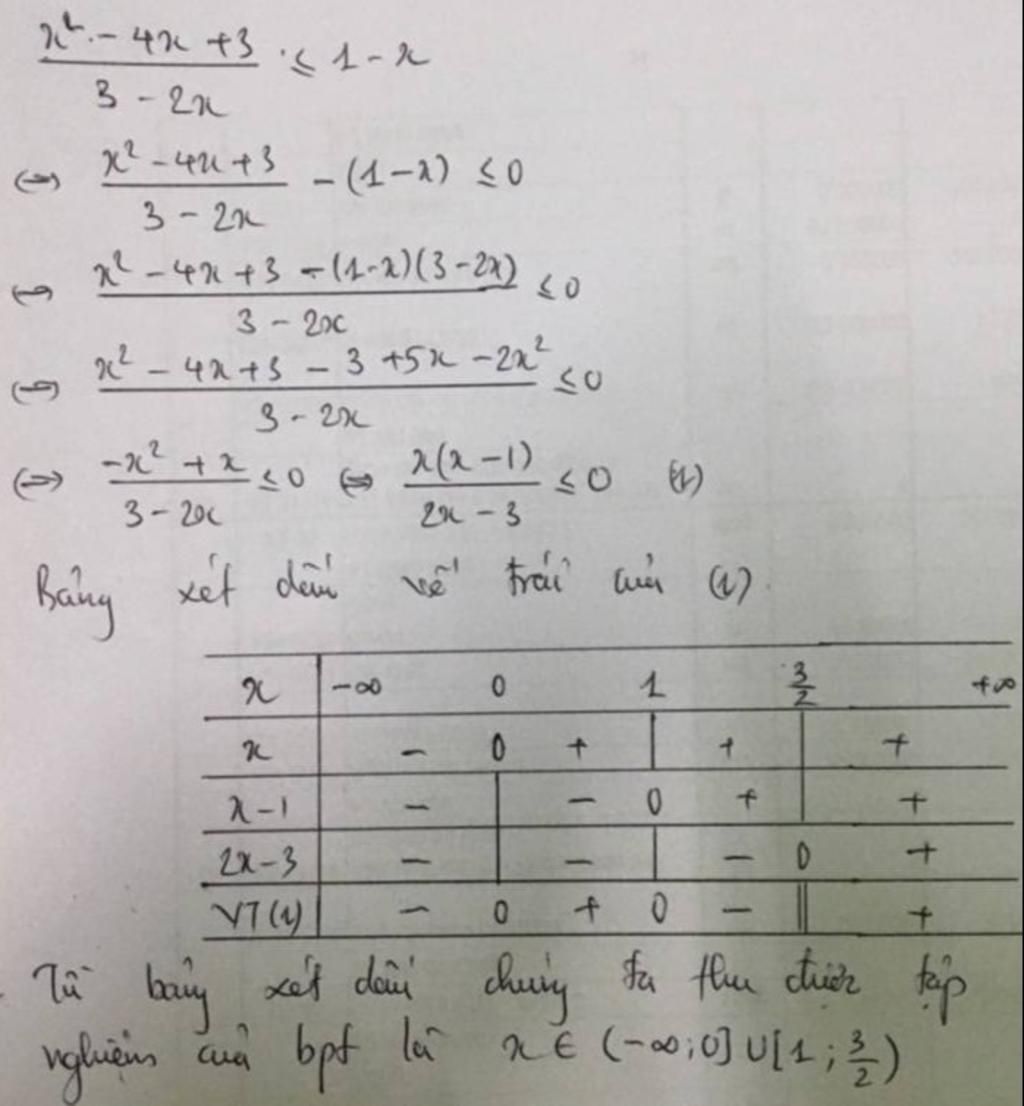 x² - 4x + 3 / 3 - 2x ≤ 1 - x
⇔ x² - 4x + 3 / 3 - 2x - (1 - x) ≤ 0
⇔ x² - 4x + 3 - (1-x)(3-2x) / 3 - 2x ≤ 0
⇔ x² - 4x + 3 - 3 + 5x - 2x² / 3 - 2x ≤ 0
⇔ -x² + x / 3 - 2x ≤ 0 ⇔ x(x - 1) / 2x - 3 ≤ 0 (1)
Bảng xét dấu vế trái của (1)
x | -∞ 0 1 3/2 +∞
x | - 0 + | + | +
x-1 | - | - 0 + | +
2x-3 | - | - | - 0 +
VT(1) | - 0 + 0 - || +
Từ bảng xét dấu chúng ta thu được tập
nghiệm của bpt là x ∈ (-∞;0] ∪ [1; 3/2)